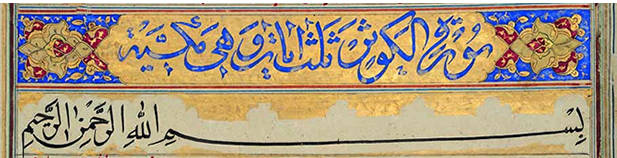 سورة الكوثر ثلث ايات وهي مكية
بسم الله الرحمن الرحيم